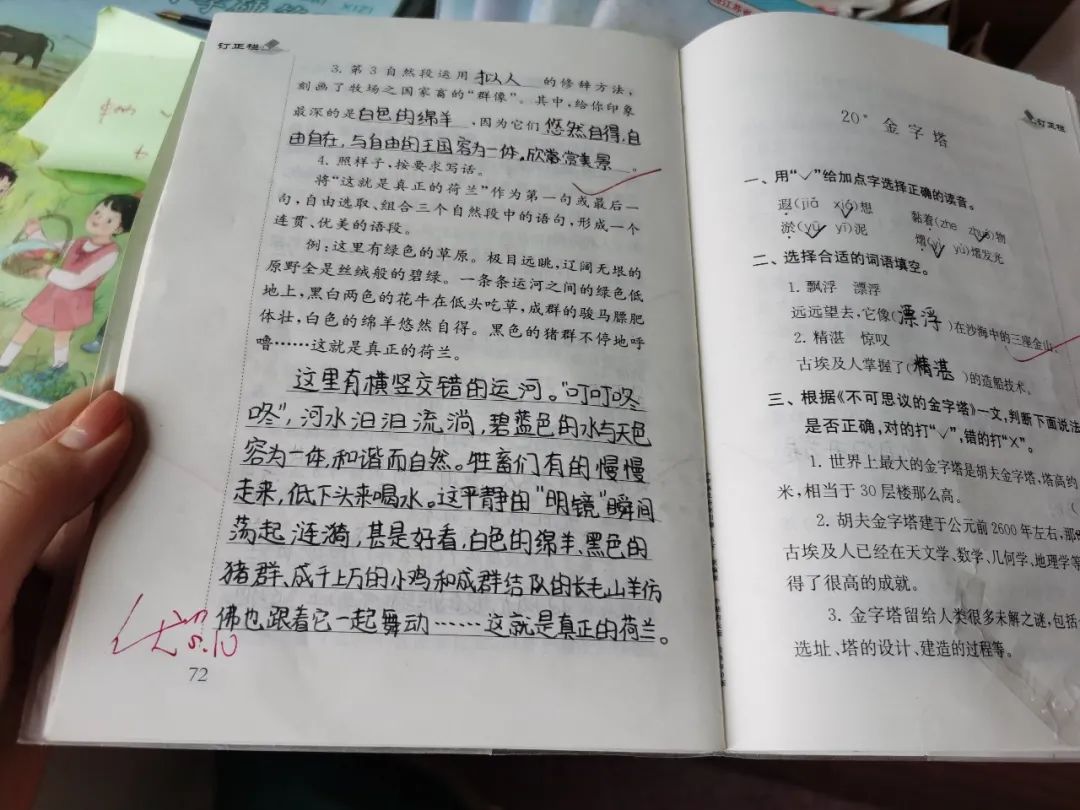 订正栏
3. 第3自然段运用拟人的修辞方法，
刻画了牧场之国家畜的“群像”。其中，给你印象
最深的是白色的绵羊，因为它们悠然自得，自
由自在，与自由的王国容为一体，欣常赏美景。
4. 照样子，按要求写话。
将“这就是真正的荷兰”作为第一句或最后一
句，自由选取、组合三个自然段中的语句，形成一个
连贯、优美的语段。
例：这里有绿色的草原。极目远眺，辽阔无垠的
原野全是丝绒般的碧绿。一条条运河之间的绿色低
地上，黑白两色的花牛在低头吃草，成群的骏马膘肥
体壮，白色的绵羊悠然自得。黑色的猪群不停地呼
噜……这就是真正的荷兰。
这里有横竖交错的运河。“叮叮咚
咚”，河水汩汩流淌，碧蓝色的水与天色
容为一体，和谐而自然。牲畜们有的慢慢
走来，低下头来喝水。这平静由“明镜”瞬间
荡起涟漪，甚是好看，白色的绵羊、黑色的
猪群、成千上万的小鸡和成群结队的长毛山羊仿
佛也跟着它一起舞动……这就是真正的荷兰。
5.10
72
订正栏
20* 金字塔
一、用“✓”给加点字选择正确的读音。
遐(jiǎ xiá)想 黏着(zhe zhuó)物
淤(yū yī)泥 熠(yì yù)熠发光
二、选择合适的词语填空。
1. 飘浮 漂浮
远远望去，它像(漂浮)在沙海中的三座金山。
2. 精湛 惊叹
古埃及人掌握了(精湛)的造船技术。
三、根据《不可思议的金字塔》一文，判断下面说法
是否正确，对的打“✓”，错的打“×”。
1. 世界上最大的金字塔是胡夫金字塔，塔高约
米，相当于30层楼那么高。 (
2. 胡夫金字塔建于公元前2600年左右，那
古埃及人已经在天文学、数学、几何学、地理学等
得了很高的成就。
3. 金字塔留给人类很多未解之谜，包括
选址、塔的设计、建造的过程等。